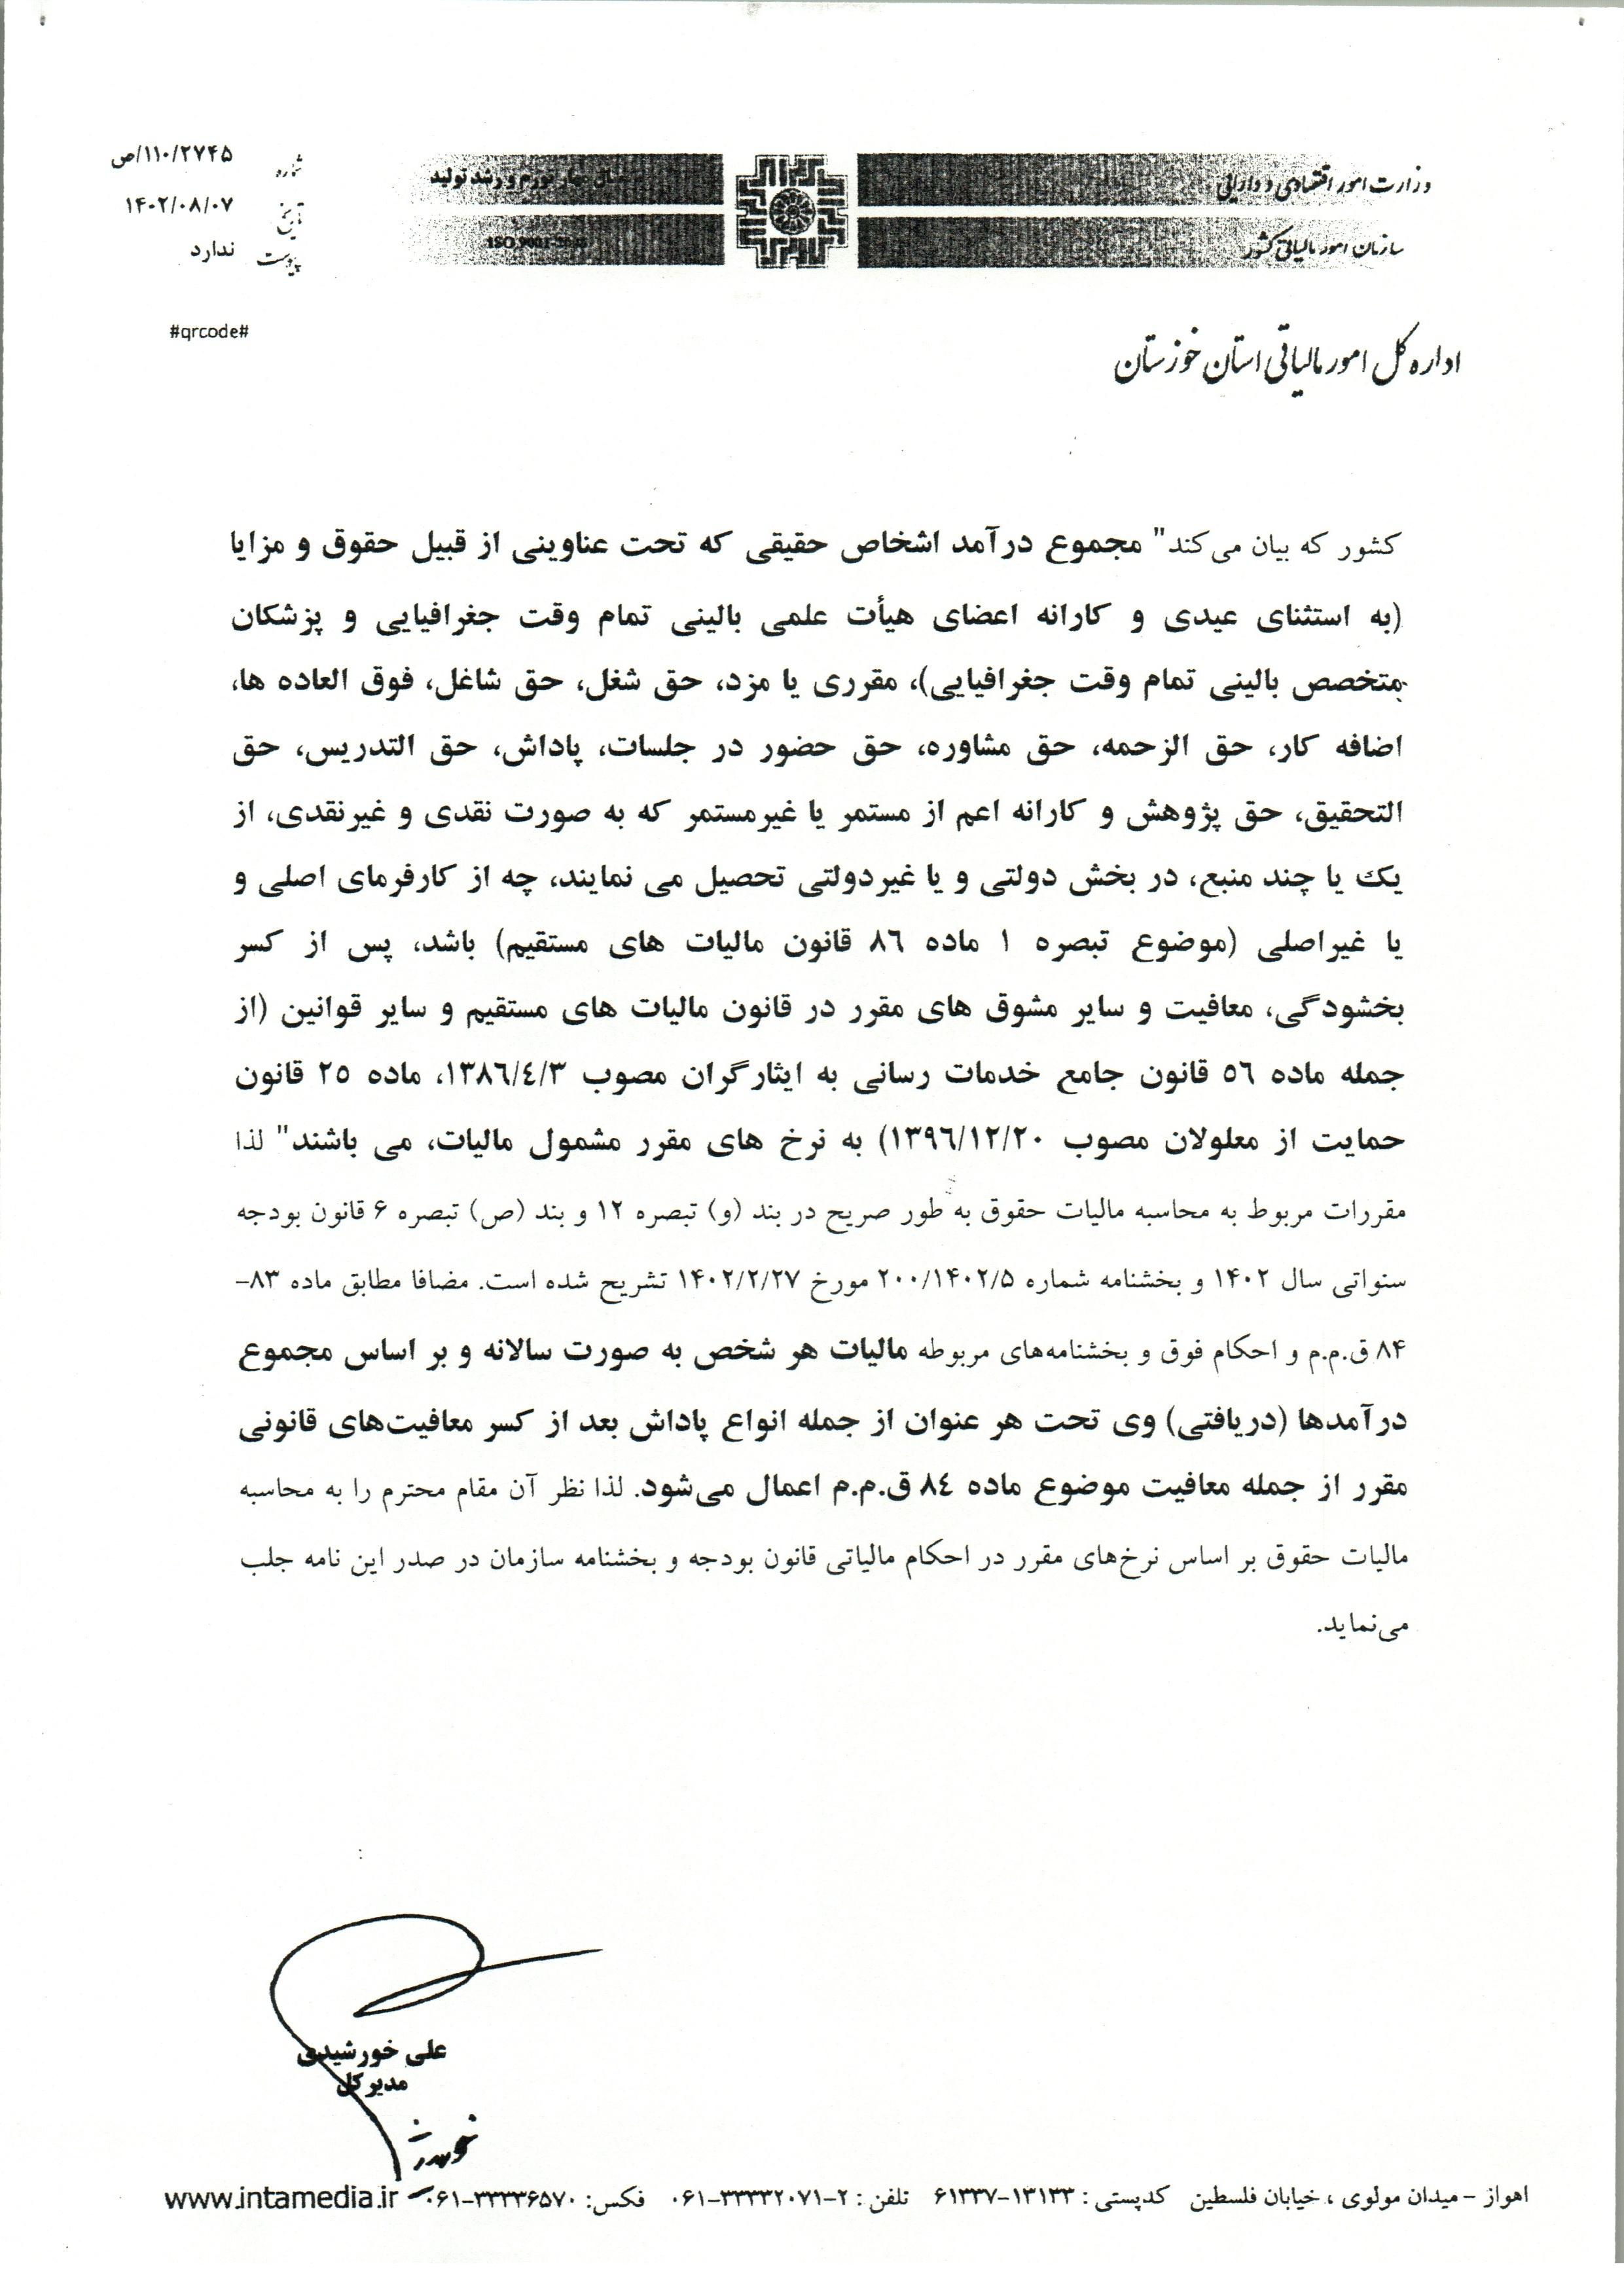 وزارت امور اقتصادی و دارایی
سازمان امور مالیاتی کشور
مهار تورم و رشد تولید
ISO 9001
شماره ۱۱۰/۲۷۴۵/ص
تاریخ ۱۴۰۲/۰۸/۰۷
پیوست ندارد
#qrcode#
اداره کل امور مالیاتی استان خوزستان
کشور که بیان می‌کند" مجموع درآمد اشخاص حقیقی که تحت عناوینی از قبیل حقوق و مزایا
(به استثنای عیدی و کارانه اعضای هیأت علمی بالینی تمام وقت جغرافیایی و پزشکان
متخصص بالینی تمام وقت جغرافیایی)، مقرری یا مزد، حق شغل، حق شاغل، فوق العاده ها،
اضافه کار، حق الزحمه، حق مشاوره، حق حضور در جلسات، پاداش، حق التدریس، حق
التحقیق، حق پژوهش و کارانه اعم از مستمر یا غیرمستمر که به صورت نقدی و غیرنقدی، از
یک یا چند منبع، در بخش دولتی و یا غیردولتی تحصیل می نمایند، چه از کارفرمای اصلی و
یا غیراصلی (موضوع تبصره ۱ ماده ۸۶ قانون مالیات های مستقیم) باشد، پس از کسر
بخشودگی، معافیت و سایر مشوق های مقرر در قانون مالیات های مستقیم و سایر قوانین (از
جمله ماده ۵۶ قانون جامع خدمات رسانی به ایثارگران مصوب ۱۳۸۶/۴/۳، ماده ۲۵ قانون
حمایت از معلولان مصوب ۱۳۹۶/۱۲/۲۰) به نرخ های مقرر مشمول مالیات، می باشند" لذا
مقررات مربوط به محاسبه مالیات حقوق به طور صریح در بند (و) تبصره ۱۲ و بند (ص) تبصره ۶ قانون بودجه
سنواتی سال ۱۴۰۲ و بخشنامه شماره ۲۰۰/۱۴۰۲/۵ مورخ ۱۴۰۲/۲/۲۷ تشریح شده است. مضافا مطابق ماده ۸۳-
۸۴ ق.م.م و احکام فوق و بخشنامه‌های مربوطه مالیات هر شخص به صورت سالانه و بر اساس مجموع
درآمدها (دریافتی) وی تحت هر عنوان از جمله انواع پاداش بعد از کسر معافیت‌های قانونی
مقرر از جمله معافیت موضوع ماده ۸۴ ق.م.م اعمال می‌شود. لذا نظر آن مقام محترم را به محاسبه
مالیات حقوق بر اساس نرخ‌های مقرر در احکام مالیاتی قانون بودجه و بخشنامه سازمان در صدر این نامه جلب
می‌نماید.
علی خورشیدی
مدیر کل
اهواز - میدان مولوی ، خیابان فلسطین کدپستی : ۱۳۱۳۳-۶۱۳۳۷ تلفن : ۲-۳۳۳۳۲۰۷۱-۰۶۱ فکس: ۳۳۳۳۶۵۷۰-۰۶۱ www.intamedia.ir